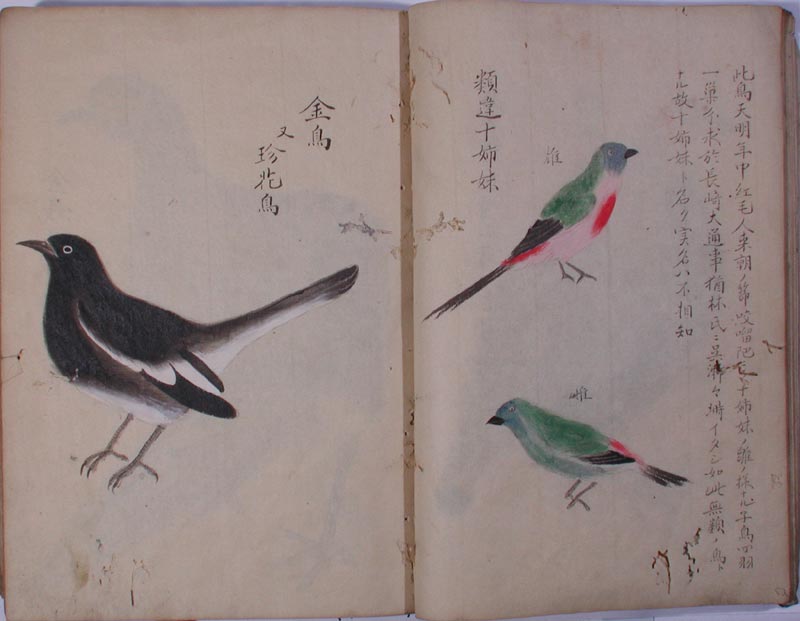 此鳥天明年中紅毛人来朝ノ節咬𠺕吧ヨリ十姉妹ノ雛ノ様ナル子鳥四羽
一巣ニ求於長崎大通事楢林氏
如此無類ノ鳥ト
ナル故十姉妹ト名ク実名ハ不相知
類違十姉妹
雄
雌
金鳥
又
珍花鳥